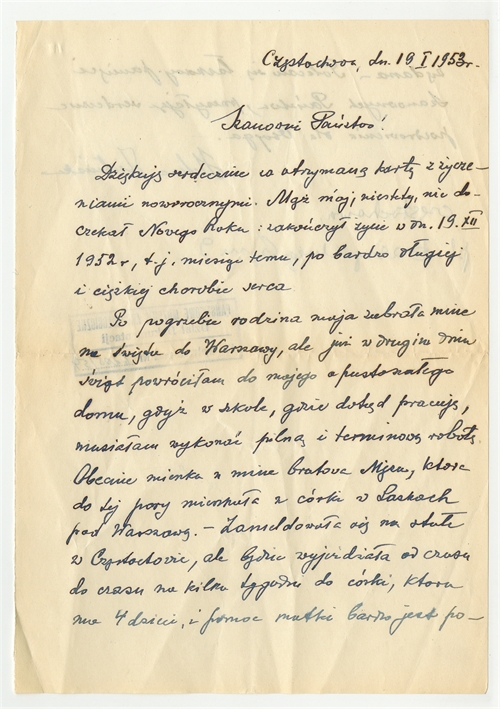 Częstochowa, dn. 19 I 1953 r.
Szanowni Państwo!
Dziękuję serdecznie za otrzymaną kartę z życze-
niami noworocznymi. Mąż mój, niestety, nie do-
czekał Nowego Roku: zakończył życie w dn. 19. XII
1952 r, t.j. miesiąc temu, po bardzo długiej
i ciężkiej chorobie serca
Po pogrzebie rodzina moja zabrała mnie
na święta do Warszawy, ale już w drugim dniu
świąt powróciłam do mojego opustoszałego
domu, gdyż w szkole, gdzie dotąd pracuję,
musiałam wykonać pilną i terminową robotę.
Obecnie mieszka u mnie bratowa Męża, która
do tej pory mieszkała z córką w Laskach
pod Warszawą. – Zameldowała się na stałe
w Częstochowie, ale będzie wyjeżdżała od czasu
do czasu na kilka tygodni do córki, która
ma 4 dzieci, i pomoc matki bardzo jest po-